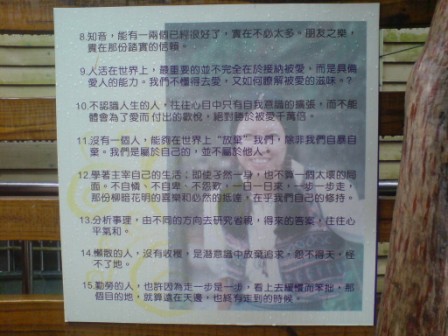 8.知音，能有一兩個已經很好了，實在不必太多。朋友之樂，
貴在那份踏實的信賴。
9.人活在世界上，最重要的並不完全在於接納被愛，而是具備
愛人的能力。我們不懂得去愛，又如何瞭解被愛的滋味。?
10.不認識人生的人，往往心目中只有自我意識的擴張，而不能
體會為了愛而付出的歡悅，絕對勝於被愛千萬倍。
11.沒有一個人，能夠在世界上"放棄"我們，除非我們自暴自
棄。我們是屬於自己的，並不屬於他人。
12.學著主宰自己的生活；即使孑然一身，也不算一個太壞的局
面。不自憐、不自卑、不怨歎，一日一日來，一步一步走，
那份柳暗花明的喜樂和必然的抵達，在乎我們自己的修持。
13.分析事理，由不同的方向去研究省視，得來的答案，往往心
平氣和。
14.懶散的人，沒有收穫，是潛意識中放棄追求，怨不得天，怪
不了地。
15.勤勞的人，也許因為走一步是一步，看上去緩慢而笨拙，那
個目的地，就算遠在天邊，也終有走到的時候。